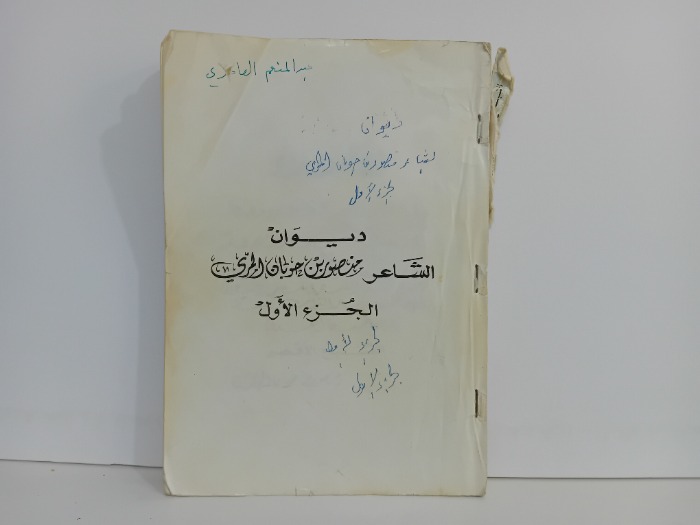 عبدالمنعم العامري
ديوان
لشاعر منصور بن حوبان المري
الجزء الأول
ديوان
الشاعر منصور بن حوبان المري
الجزء الأول
الجزء الأول
الجزء الأول